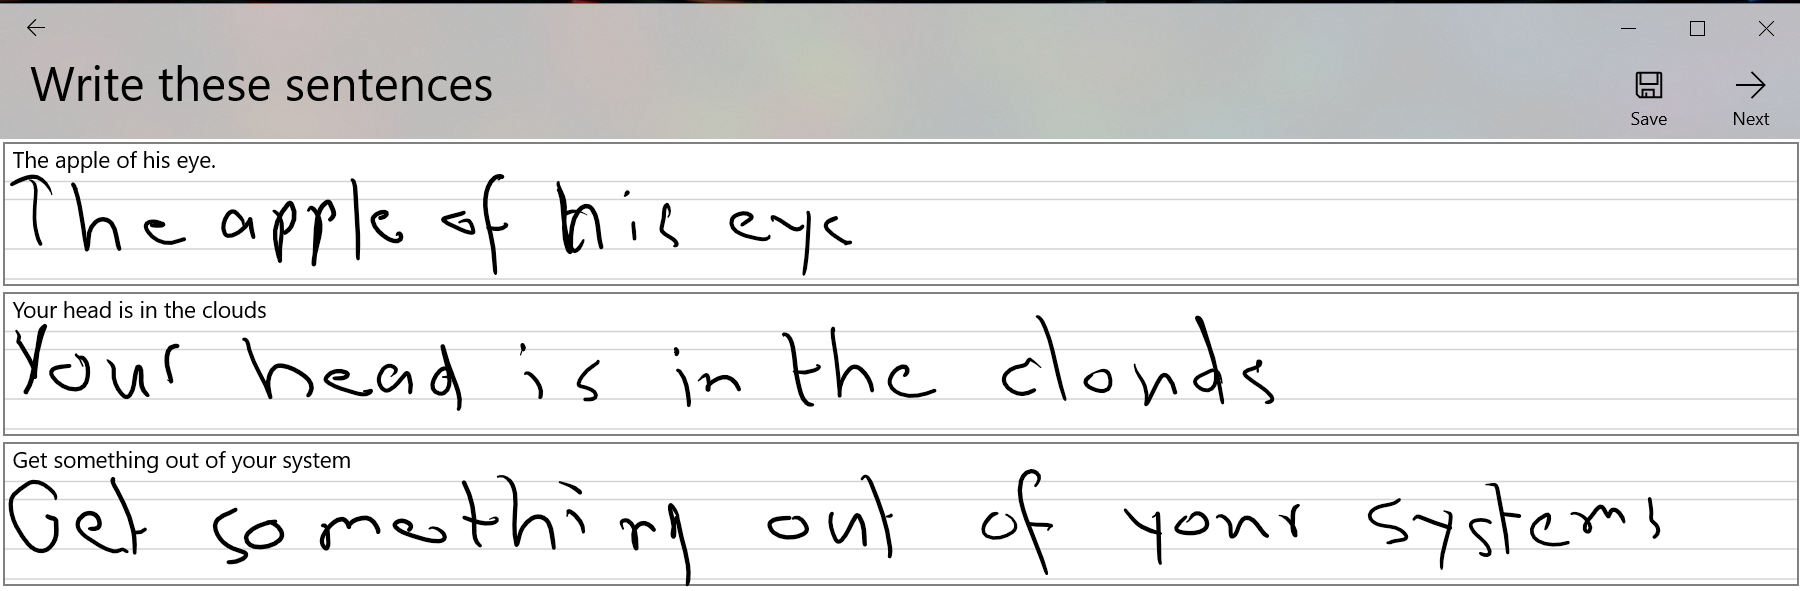 Write these sentences
Save
Next
The apple of his eye.
The apple of his eye
Your head is in the clouds
Your head is in the clouds
Get something out of your system
Get something out of your systems